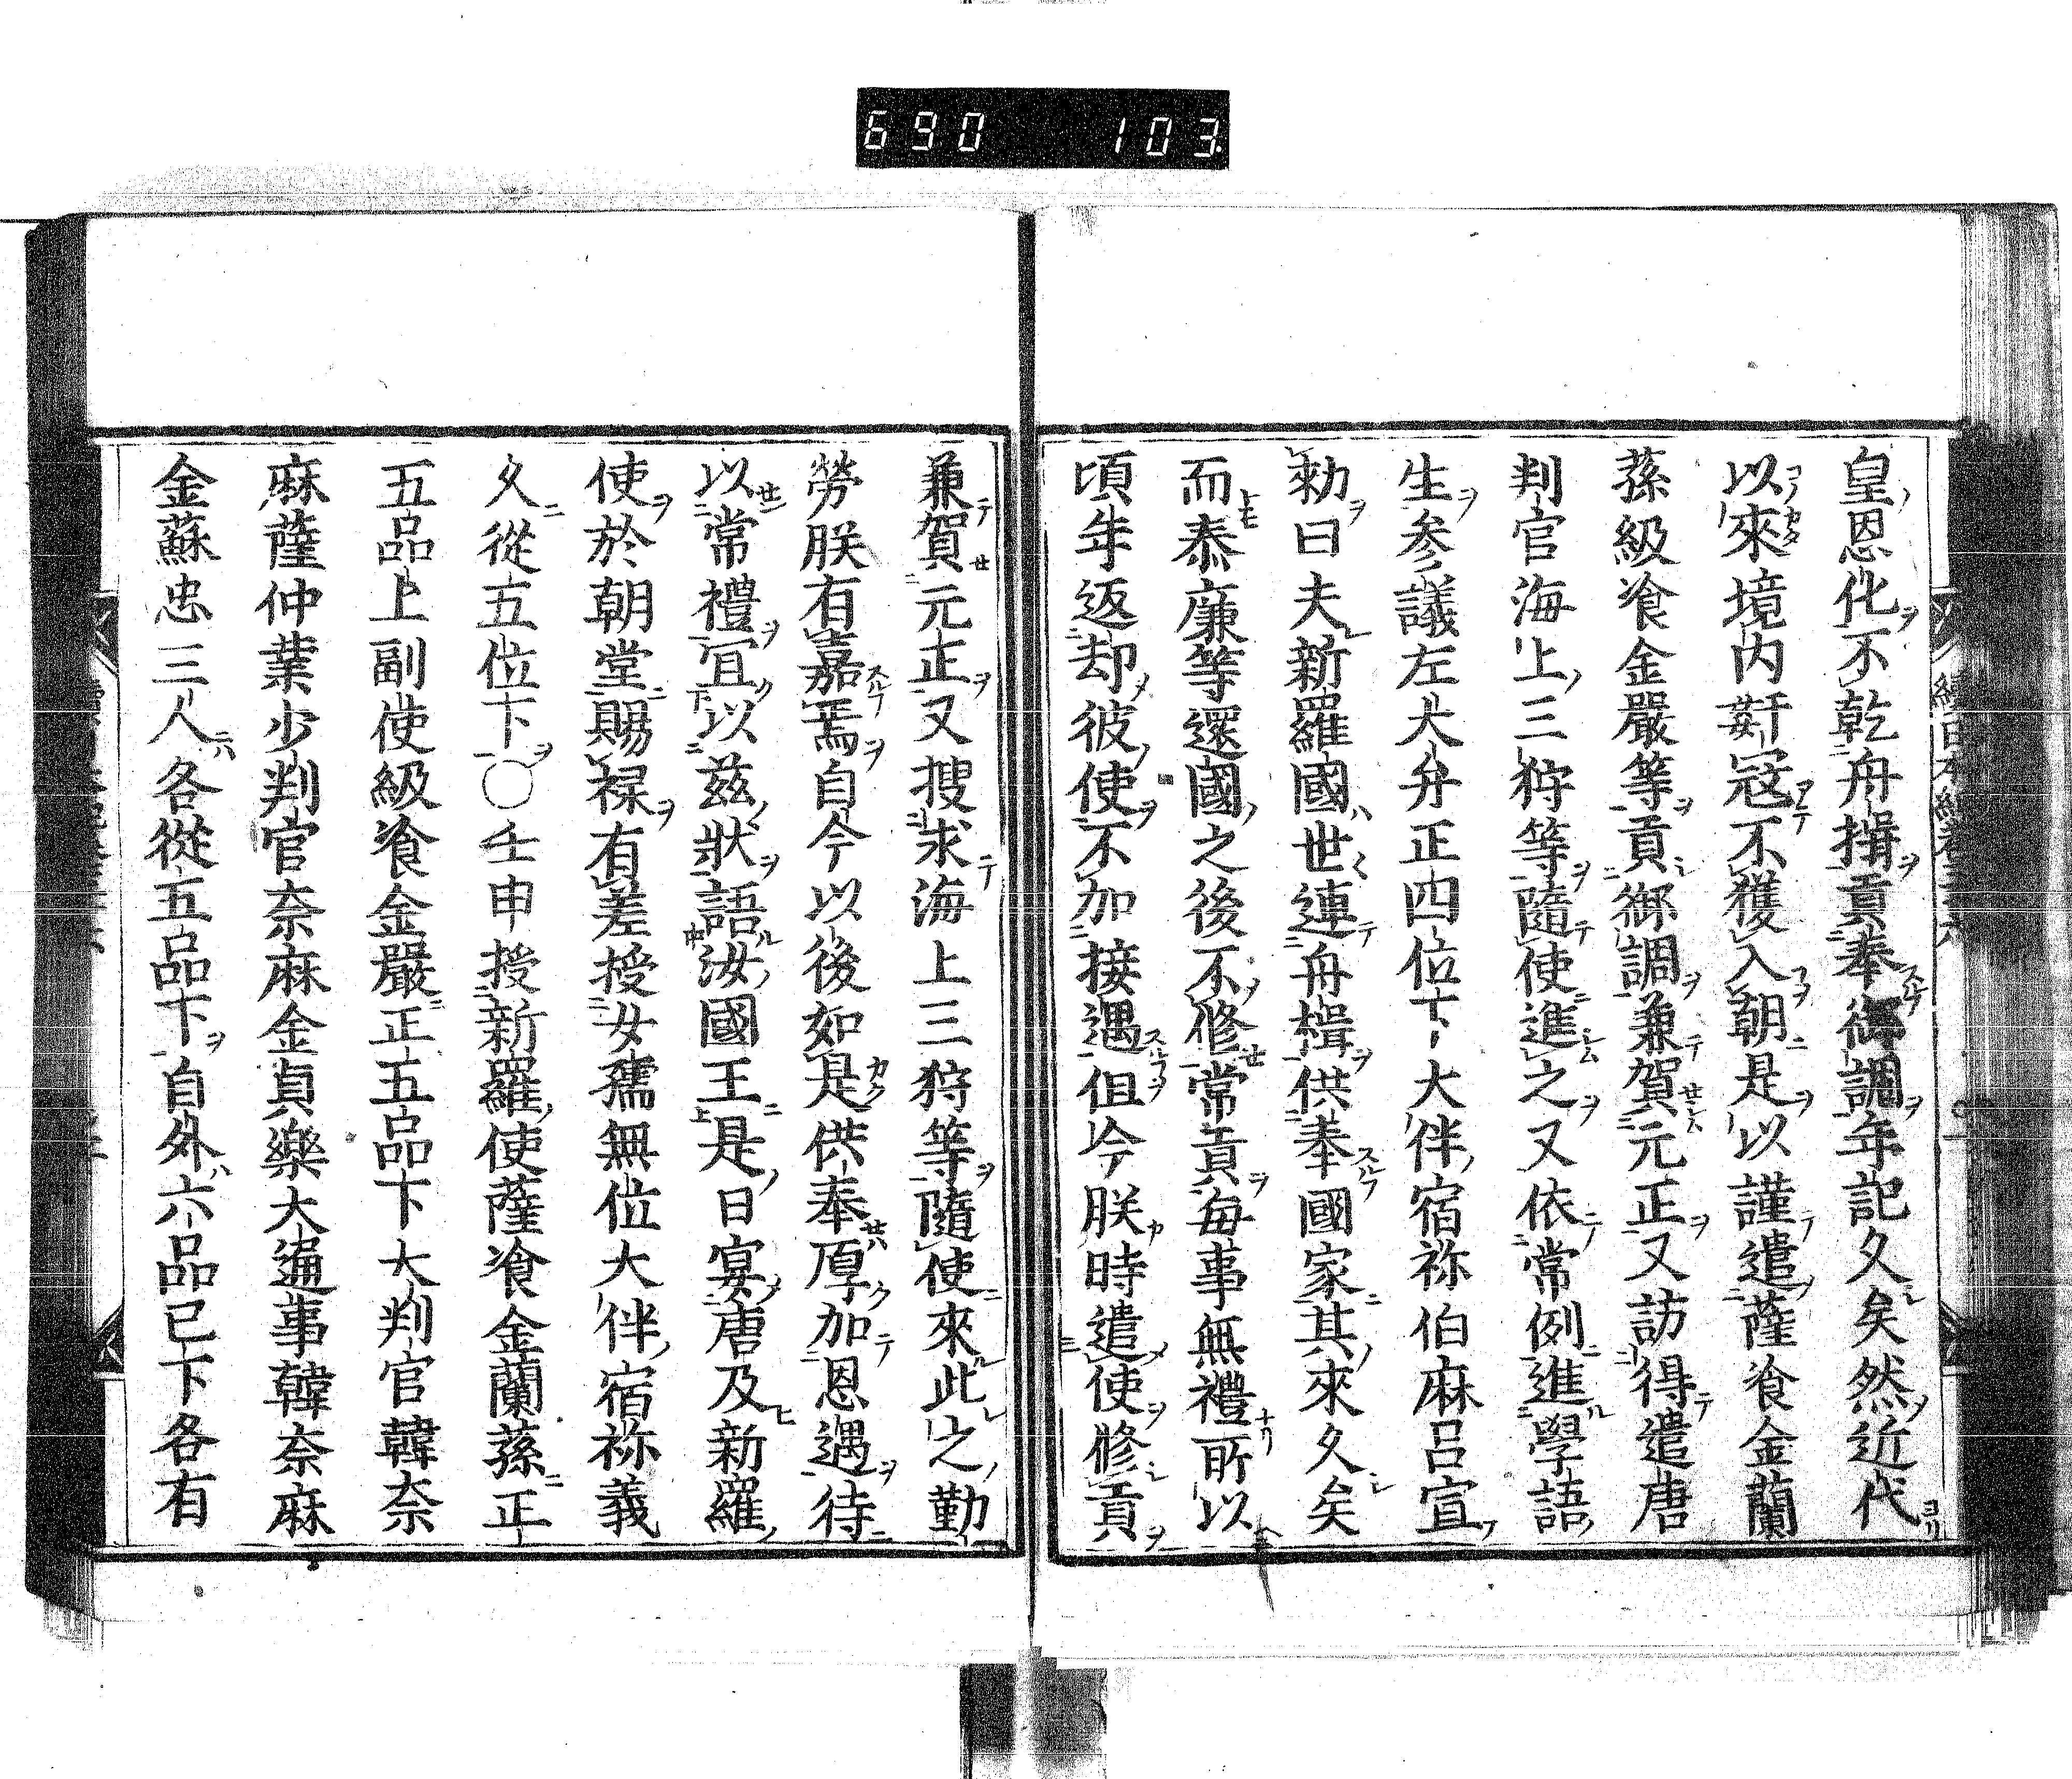 690 103.
皇恩化不乾舟揖貢奉御調年記久矣然近代
以來境内姧冦不獲入朝是以謹遣薩飡金蘭
蓀級飡金嚴等貢御調兼賀元正又訪得遣唐
判官海上三狩等隨使進之又依常例進學語
生参議左大弁正四位下大伴宿祢伯麻呂宣
勅曰夫新羅國世連舟楫供奉國家其來久矣
而泰廉等還國之後不修常貢毎事無禮所以
頃年返却彼使不加接遇但今朕時遣使修貢
兼賀元正又搜求海上三狩等隨使來此之勤
勞朕有嘉焉自今以後如是供奉厚加恩遇待
以常禮冝以茲狀語汝國王是日宴唐及新羅
使於朝堂賜禄有差授女孺無位大伴宿祢義
久從五位下○壬申授新羅使薩飡金蘭蓀正
五品上副使級飡金嚴正五品下大判官韓奈
麻薩仲業少判官奈麻金貞樂大通事韓奈麻
金蘇忠三人各從五品下自外六品已下各有